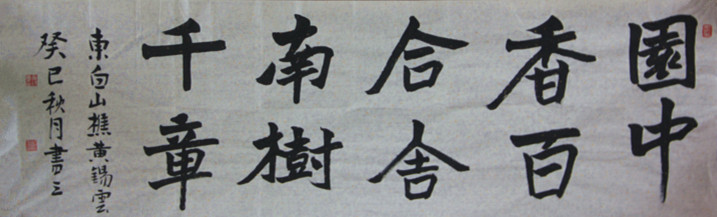 園中
香百
合舍
南樹
千章
東白山樵黄錫雲
癸巳秋月書之